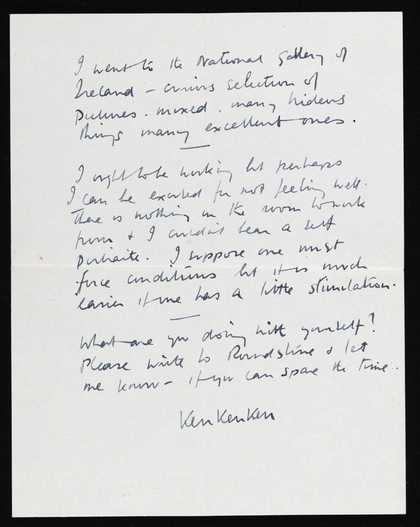 I went to the National Gallery of
Ireland – curious selection of
Pictures. mixed. many hideous
things many excellent ones.
I ought to be working but perhaps
I can be excused for not feeling well.
There is nothing in the room to work
from & I couldn't bear a self
Portrait. I suppose one must
force conditions but it is much
easier if one has a little stimulation.
What are you doing with yourself?
Please write to Roundstone & let
me know – if you can spare the time.
Ken Ken Ken